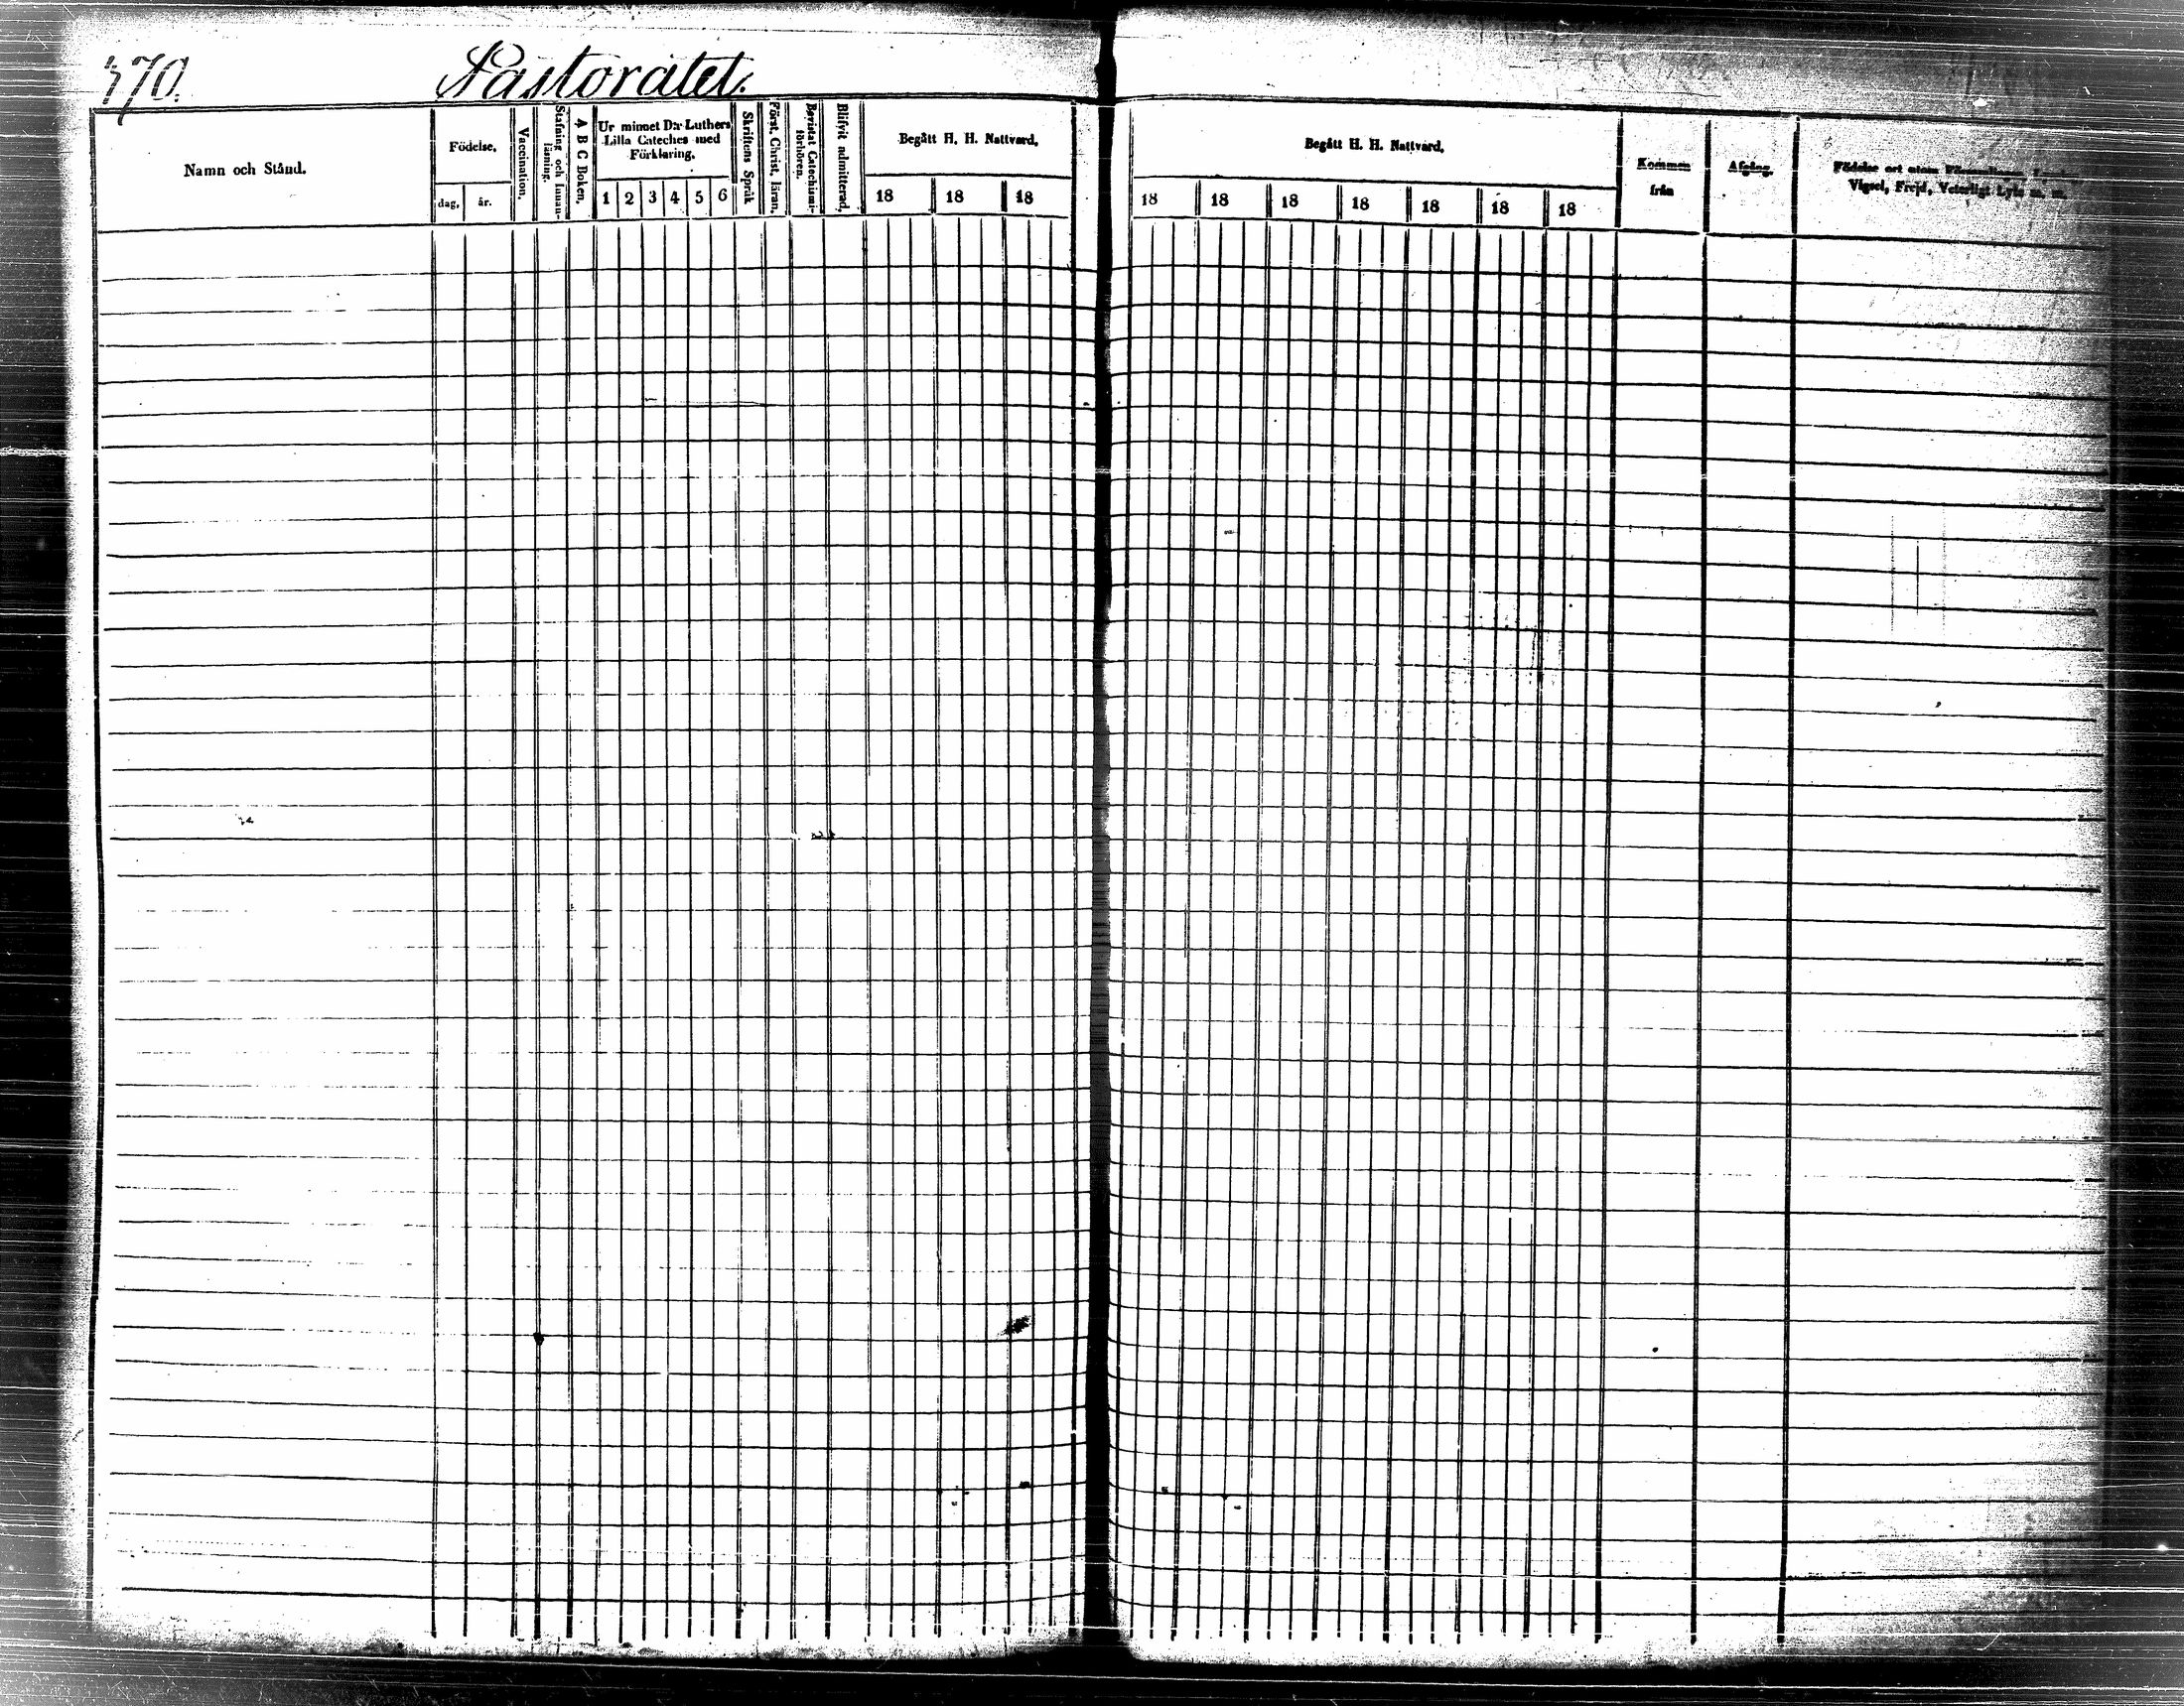 470. Pastoratet.
Namn och Stånd.
Födelse,
dag, år.
Vaccination.
Stafning och Innan-
läsning.
A B C Boken.
Ur minnet D:r Luthers
Lilla Cateches med
Förklaring.
1 2 3 4 5 6
Skriftens Språk
Först. Christ. läran.
Bevistat Catechismi-
förhören.
Blifvit admitterad,
Begått H. H. Nattvard,
18 18 18
Begått H. H. Nattvard,
18 18 18 18 18 18 18
Kommen
från
Afgång,
Födelse ort utom
Vigsel, Frejd, Veterligt Lyte m. m.